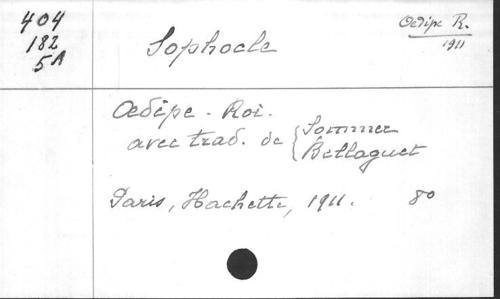 404
182
5A
Sophocle
Oedipe R.
1911
Oedipe-Roi.
avec trad. de { Sommer
Bellaguet
Paris, Hachette, 1911. 8°